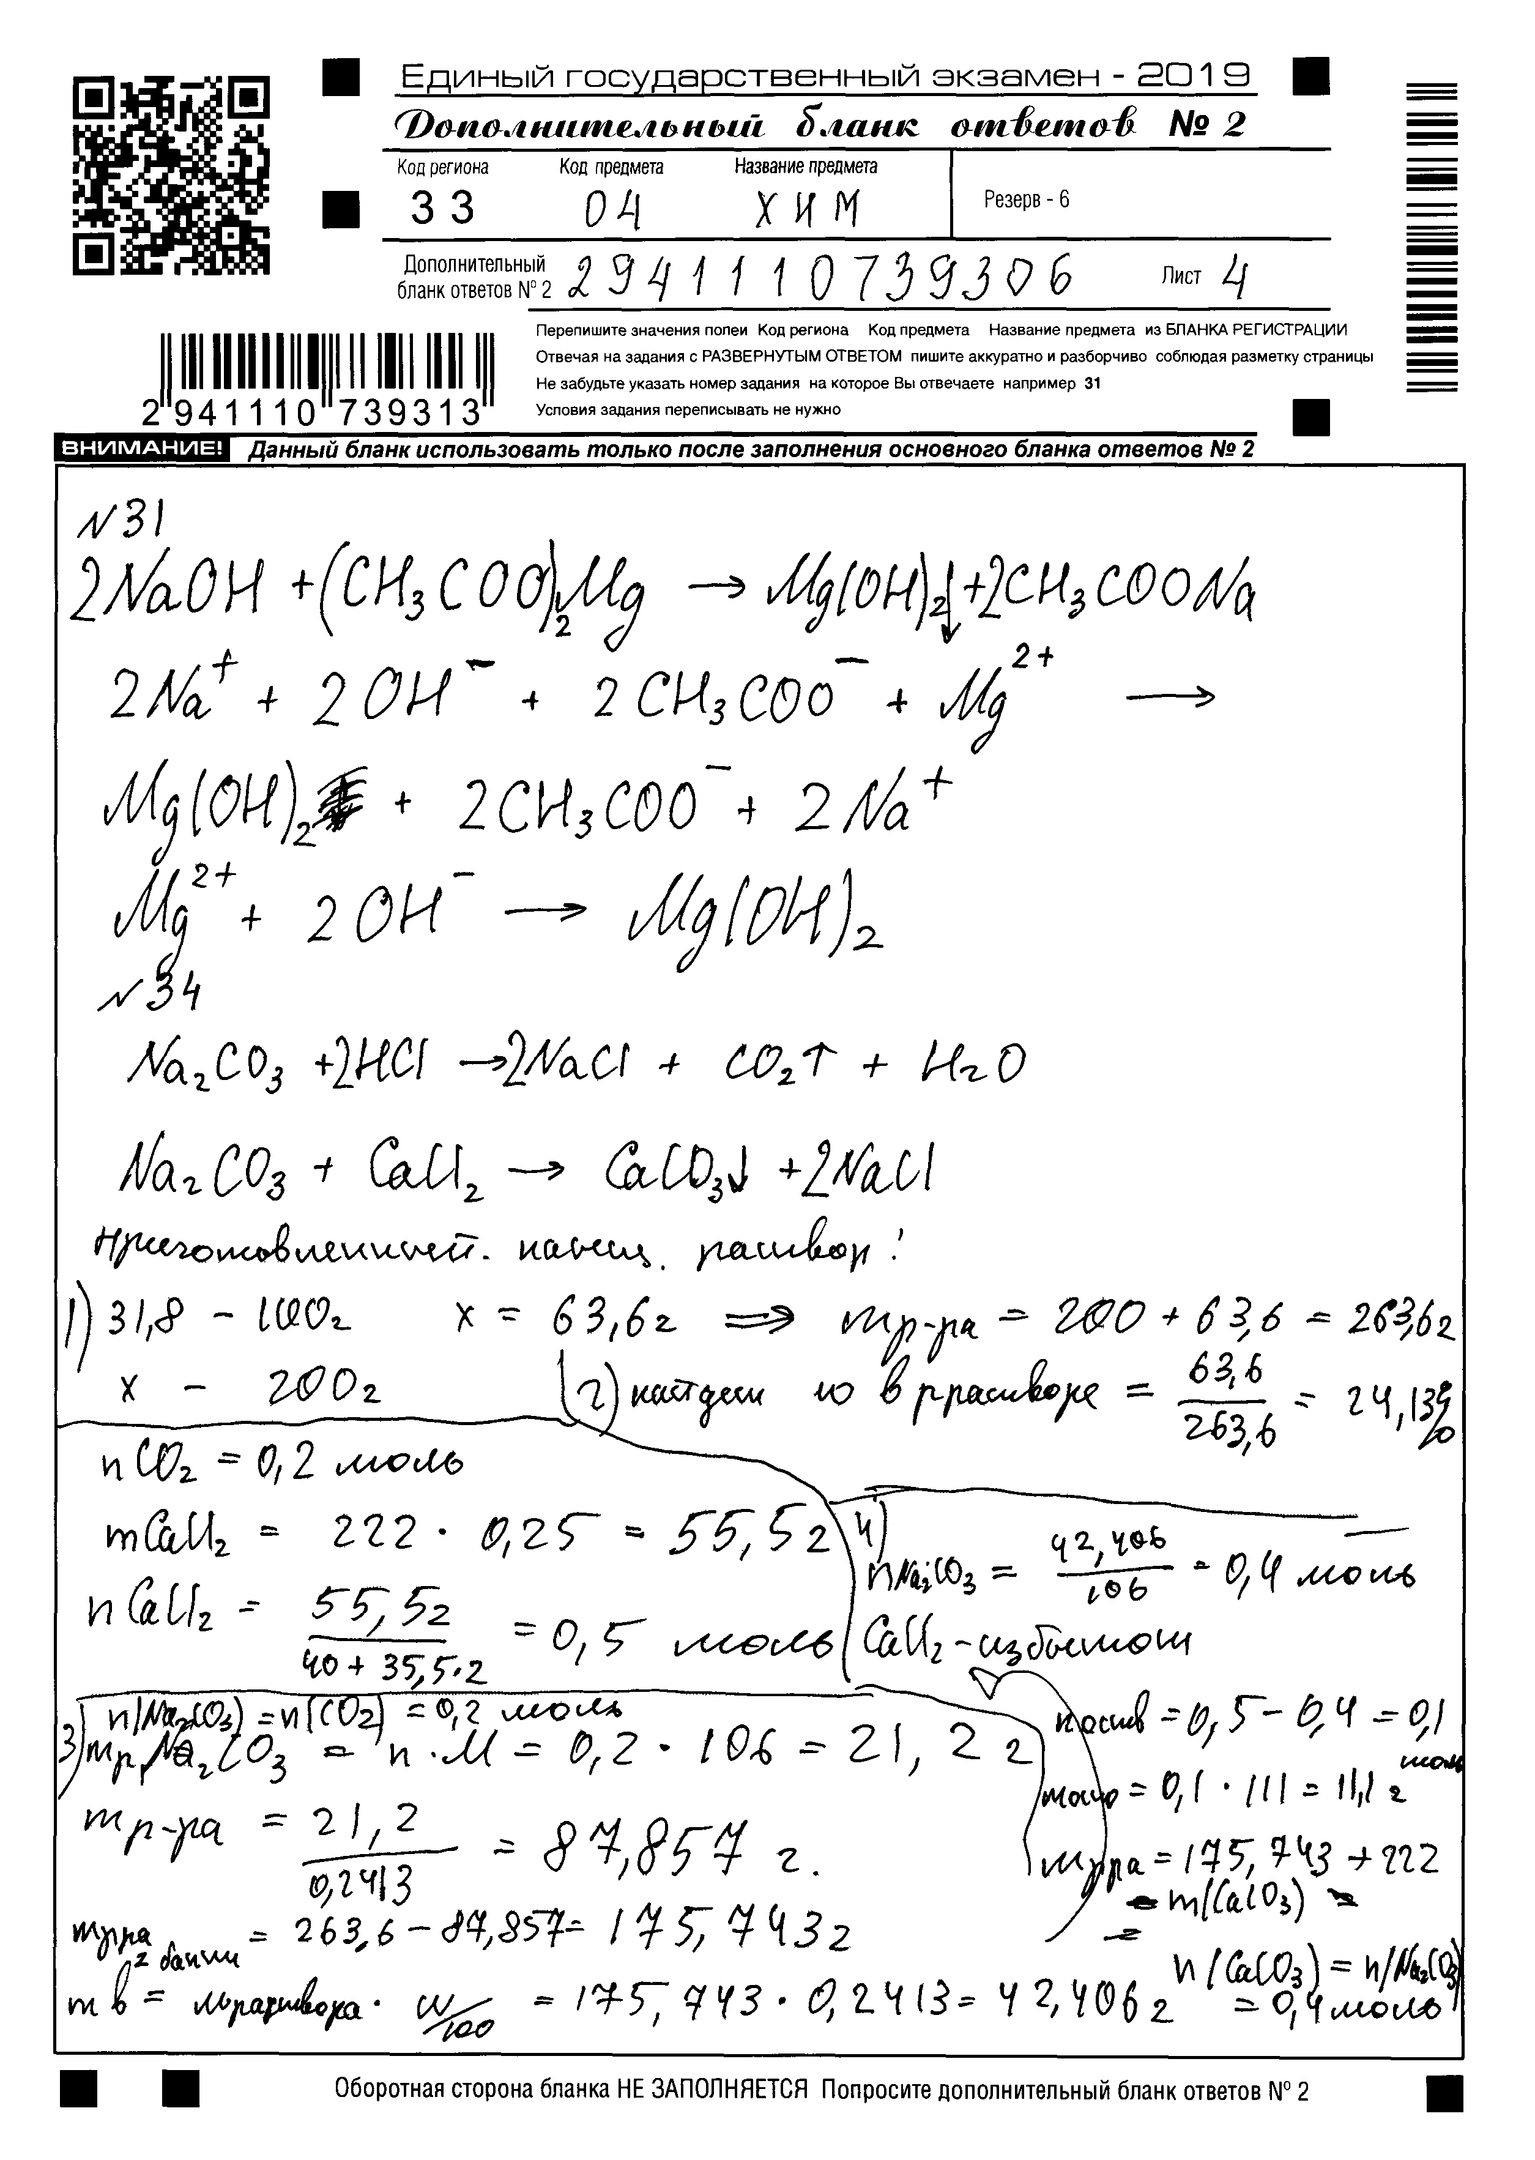 Единый государственный экзамен - 2019
Дополнительный бланк ответов № 2
Код региона Код предмета Название предмета
33 04 ХИМ Резерв - 6
Дополнительный бланк ответов № 2 2941110739306 Лист 4
Перепишите значения полей Код региона Код предмета Название предмета из БЛАНКА РЕГИСТРАЦИИ
Отвечая на задания с РАЗВЕРНУТЫМ ОТВЕТОМ пишите аккуратно и разборчиво соблюдая разметку страницы
Не забудьте указать номер задания на которое Вы отвечаете например 31
Условия задания переписывать не нужно
2 941110 739313
ВНИМАНИЕ! Данный бланк использовать только после заполнения основного бланка ответов № 2
N31
2NaOH + (CH₃COO)₂Mg → Mg(OH)₂↓ + 2CH₃COONa
2Na⁺ + 2OH⁻ + 2CH₃COO⁻ + Mg²⁺ →
Mg(OH)₂ + 2CH₃COO⁻ + 2Na⁺
Mg²⁺ + 2OH⁻ → Mg(OH)₂
N34
Na₂CO₃ + 2HCl → 2NaCl + CO₂↑ + H₂O
Na₂CO₃ + CaCl₂ → CaCO₃↓ + 2NaCl
раствор:
1) 31,8 - 100г x = 63,6г ⟹ mр-ра = 200 + 63,6 = 263,6г
x - 200г
2) найдем ω в растворе = 63,6/263,6 = 24,13%
nCO₂ = 0,2 моль
mCaCl₂ = 222 · 0,25 = 55,5г
nCaCl₂ = 55,5г/(40 + 35,5·2) = 0,5 моль
3) n(Na₂CO₃) = n(CO₂) = 0,2 моль
mр Na₂CO₃ = n·M = 0,2 · 106 = 21,2г
mр-ра = 21,2/0,2413 = 87,857 г.
mр-ра 2 банки = 263,6 - 87,857 = 175,743г
mв = mраствора · ω/100 = 175,743 · 0,2413 = 42,406г
4)
nNa₂CO₃ = 42,406/106 = 0,4 моль
CaCl₂ - избыток
nост в = 0,5 - 0,4 = 0,1 моль
= 0,1 · 111 = 11,1 г
mр-ра = 175,743 + 222
- m(CaCO₃) =
=
n(CaCO₃) = n(Na₂CO₃)
= 0,4 моль
Оборотная сторона бланка НЕ ЗАПОЛНЯЕТСЯ Попросите дополнительный бланк ответов № 2